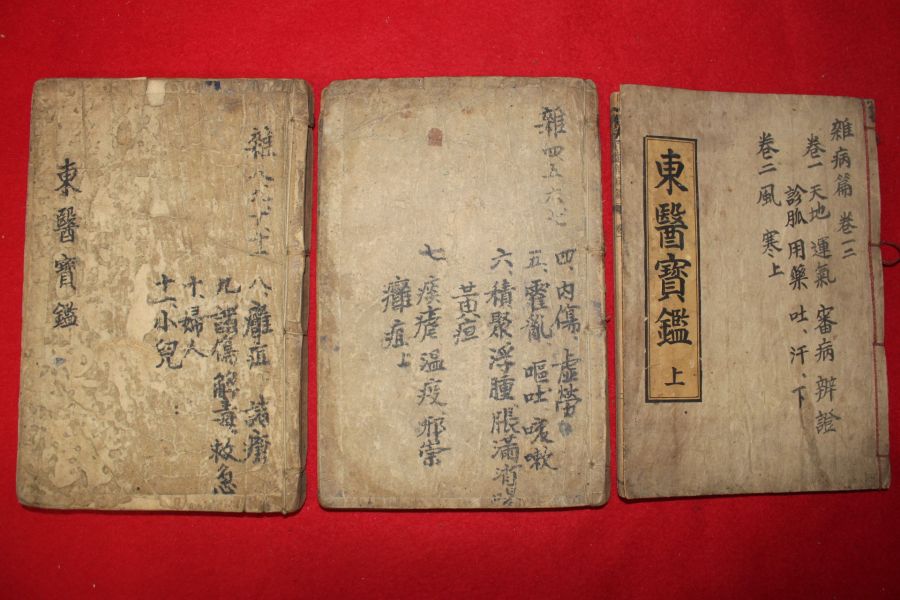 雜病篇 卷一二
卷一 天地 運氣 審病 辨證
診脉 用藥 吐、汗、下
卷二 風 寒上
東醫寶鑑 上
雜四五六七
四、內傷、虛勞
五、霍亂 嘔吐 咳嗽
六、積聚浮腫脹滿消渴
黃疸
七、痎瘧溫疫邪祟
癰疽上
雜八九十十一
八、癰疽 諸瘡
九、諸傷 解毒、救急
十、婦人
十一小兒
東醫寶鑑